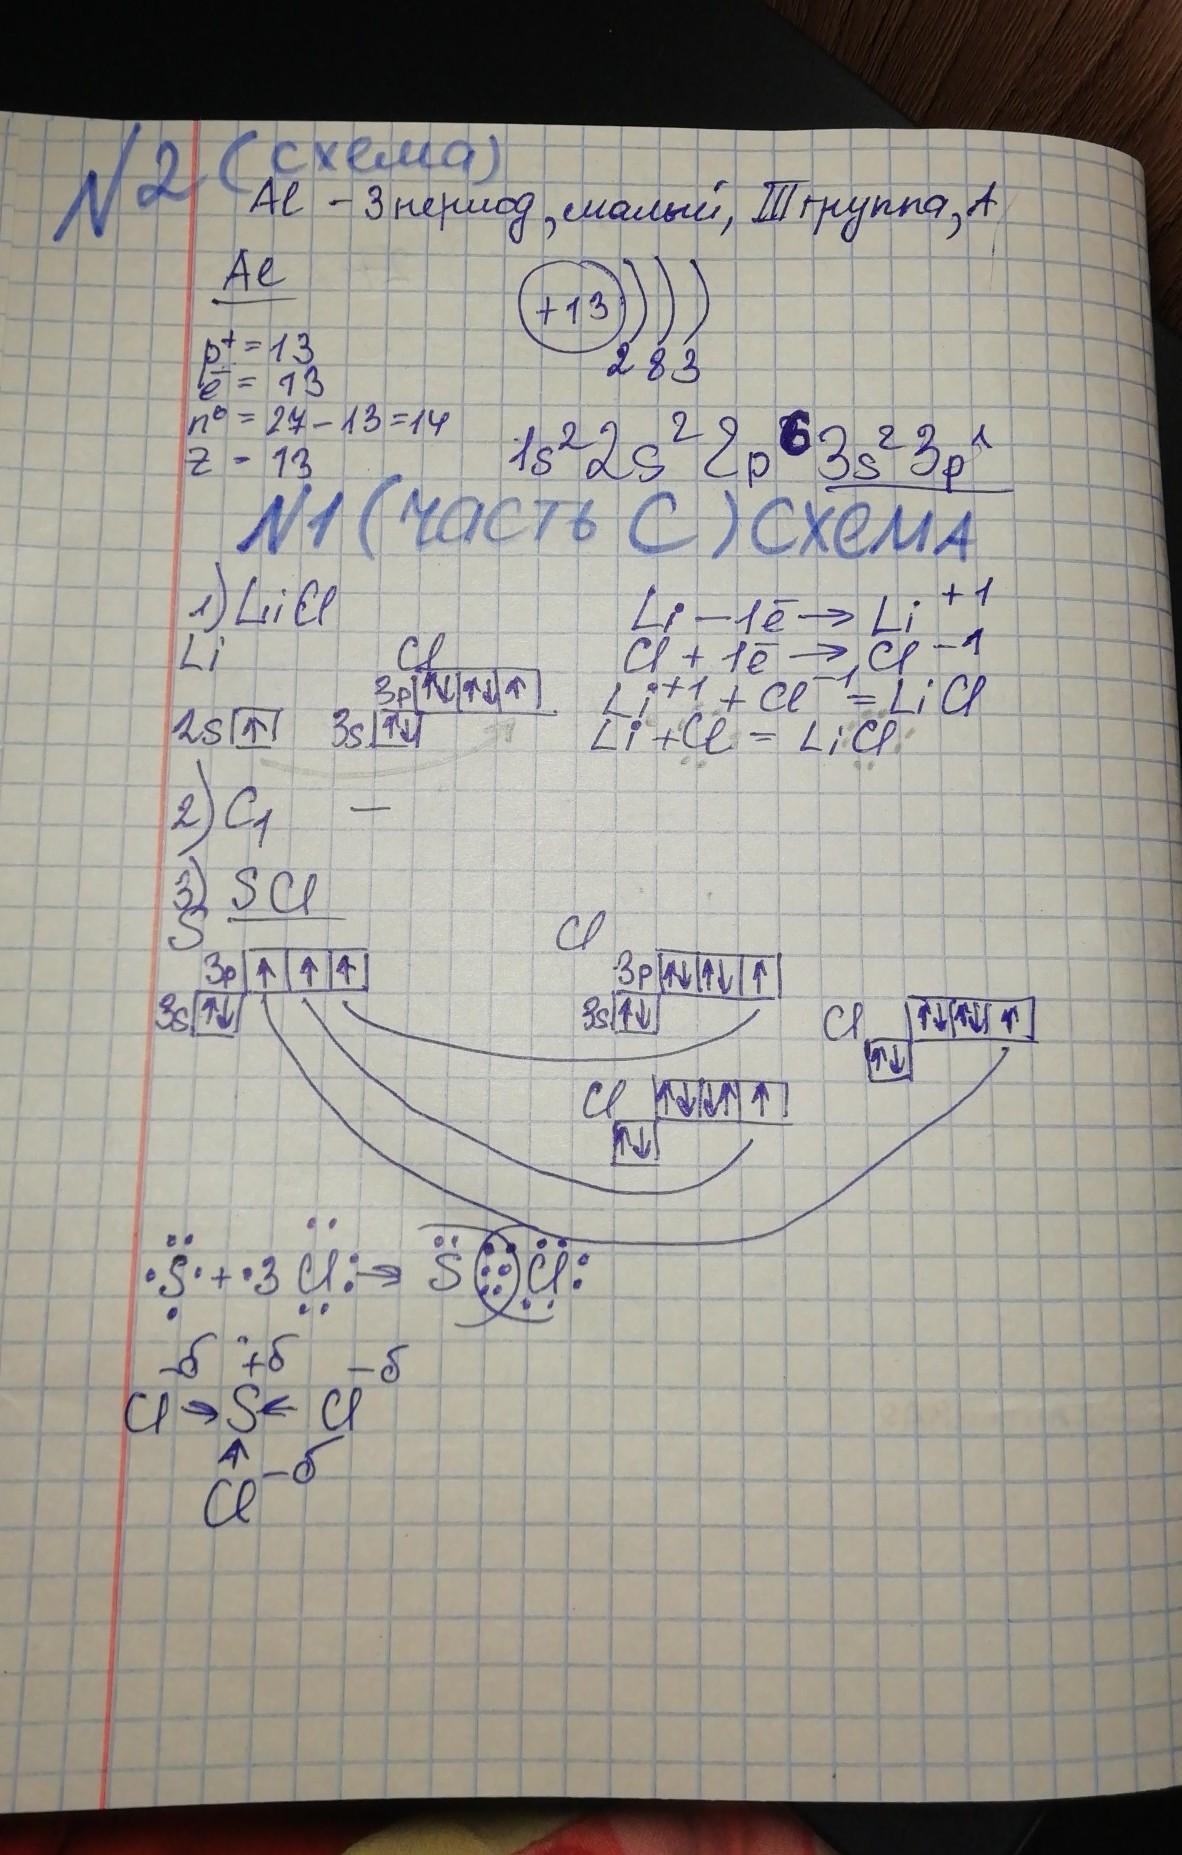 N2 (схема)
Al - 3 период, малый, III группа, А
Al
+13 ) ) )
2 8 3
p⁺ = 13
e̅ = 13
n⁰ = 27 - 13 = 14
z = 13
1s² 2s² 2p⁶ 3s² 3p¹
N1 (часть С) СХЕМА
1) LiCl
Li
Cl
2s ↑
3p ↑↓ ↑↓ ↑
3s ↑↓
Li - 1e̅ → Li⁺¹
Cl + 1e̅ → Cl⁻¹
Li⁺¹ + Cl⁻¹ = LiCl
Li + Cl = LiCl
2) C₁ —
3) SCl
S
3p ↑ ↑ ↑
3s ↑↓
Cl
3p ↑↓ ↑↓ ↑
3s ↑↓
Cl ↑↓ ↑↓ ↑
↑↓
Cl ↑↓ ↓↑ ↑
↑↓
S + 3 Cl → S Cl
-δ +δ -δ
Cl → S ← Cl
↑
Cl -δ